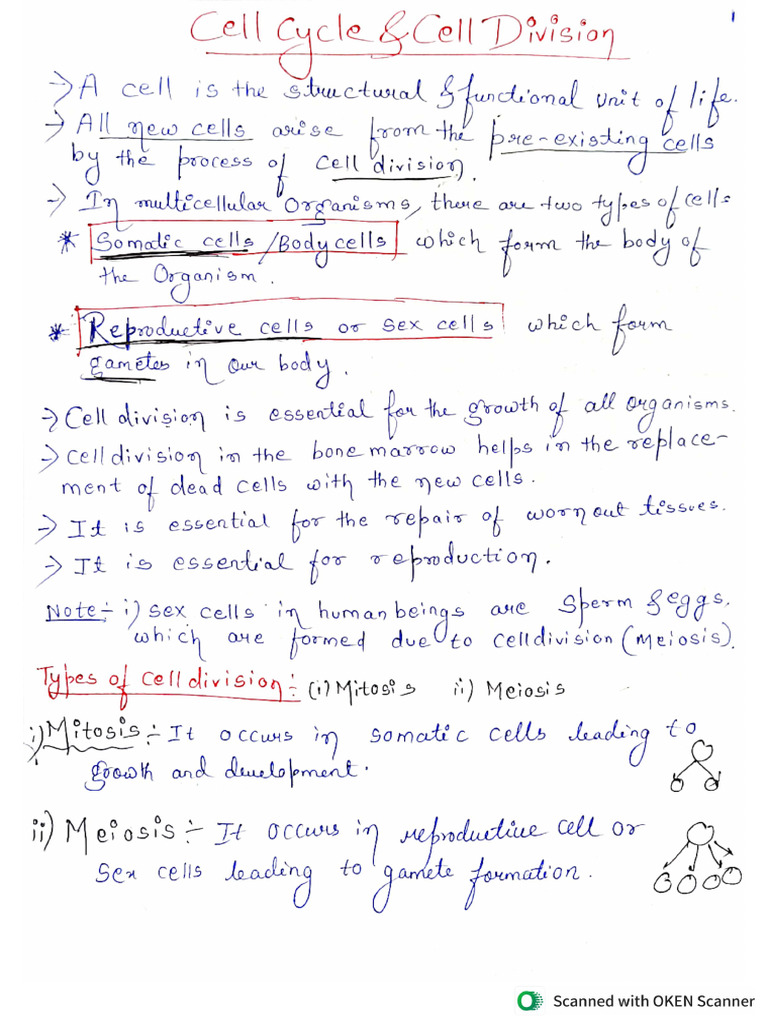 1
Cell Cycle & Cell Division
-> A cell is the structural & functional unit of life.
-> All new cells arise from the pre-existing cells
by the process of cell division.
-> In multicellular Organisms, there are two types of cells
* Somatic cells / Body cells which form the body of
the Organism.
* Reproductive cells or sex cells which form
gametes in our body.
-> Cell division is essential for the growth of all organisms.
-> Cell division in the bone marrow helps in the replace-
ment of dead cells with the new cells.
-> It is essential for the repair of worn out tissues.
-> It is essential for reproduction.
Note:- i) Sex cells in human beings are sperm & eggs,
which are formed due to cell division (Meiosis).
Types of cell division:- (i) Mitosis ii) Meiosis
i) Mitosis:- It occurs in somatic cells leading to
growth and development.
ii) Meiosis:- It occurs in reproductive cell or
sex cells leading to gamete formation.
Scanned with OKEN Scanner